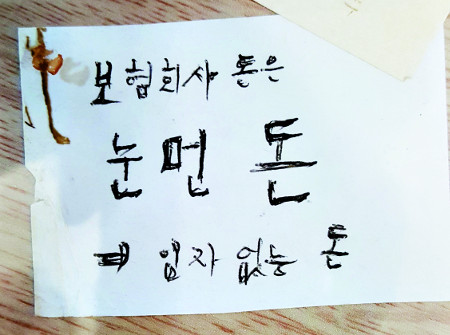 보험회사 돈은
눈먼 돈
⇒ 임자 없는 돈